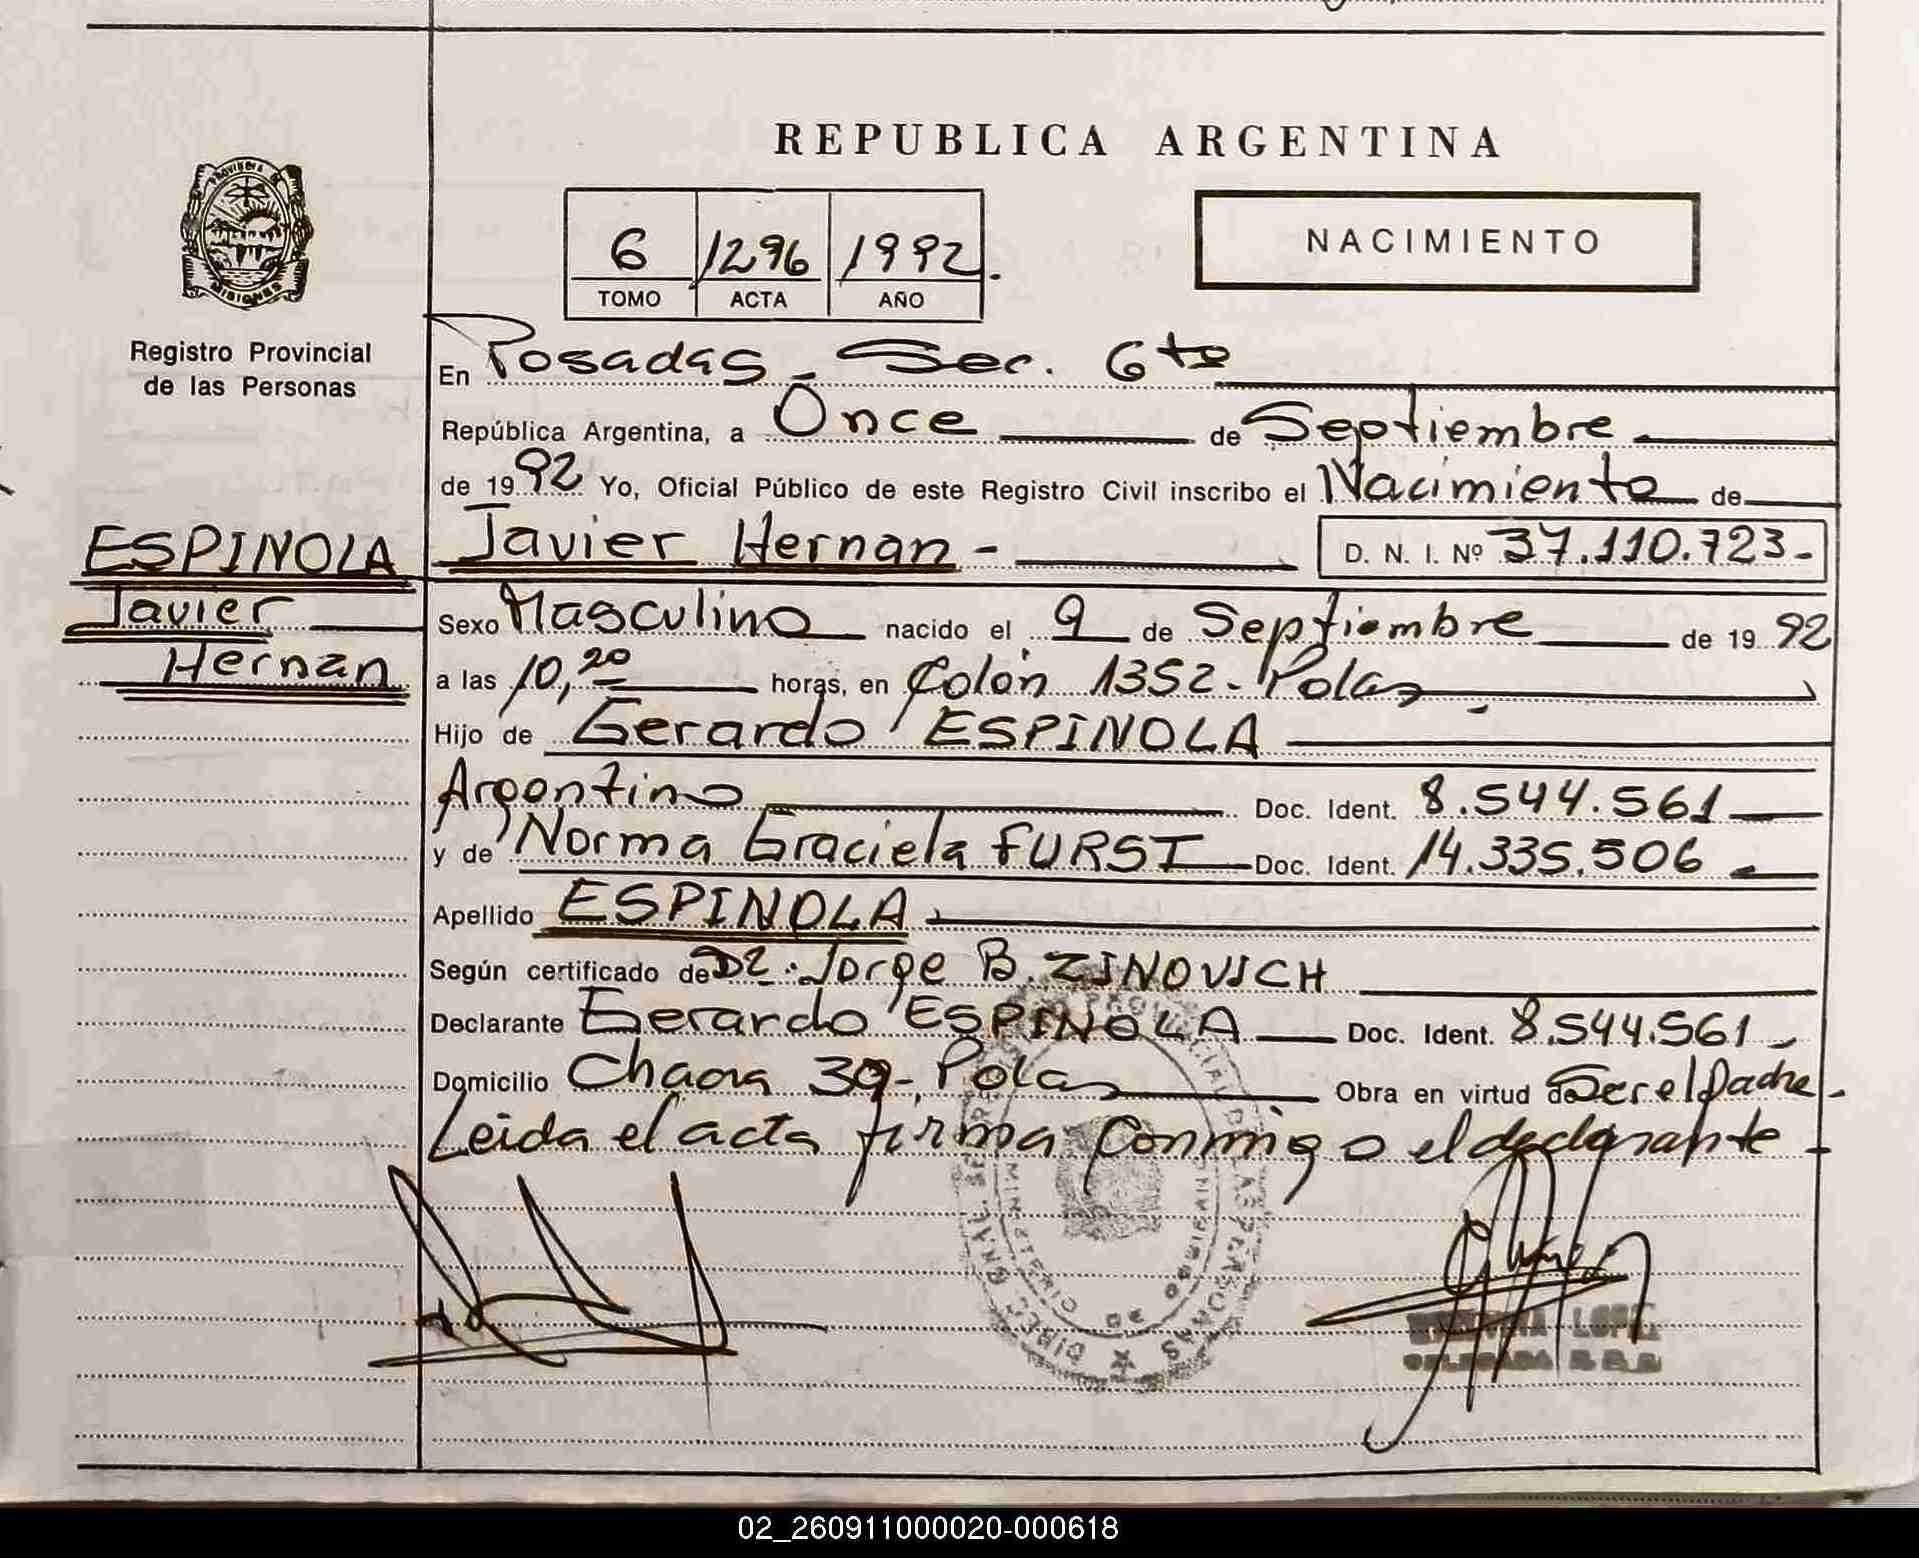 REPUBLICA ARGENTINA
PROVINCIA DE
MISIONES
Registro Provincial
de las Personas
6 1296 1992.
TOMO ACTA AÑO
NACIMIENTO
En Posadas - Sec. 6ta
República Argentina, a Once de Septiembre
de 1992 Yo, Oficial Público de este Registro Civil inscribo el Nacimiento de
ESPINOLA
Javier
Hernan
Javier Hernan - D. N. I. Nº 37.110.723-
Sexo Masculino nacido el 9 de Septiembre de 1992
a las 10,20 horas, en Colón 1352 - Pdas
Hijo de Gerardo ESPINOLA
Argentino Doc. Ident. 8.544.561
y de Norma Graciela FURST Doc. Ident. 14.335.506
Apellido ESPINOLA
Según certificado de Dr. Jorge B. ZINOVICH
Declarante Gerardo ESPINOLA Doc. Ident. 8.544.561
Domicilio Chacra 39 - Pdas Obra en virtud de Ser el Padre -
Leida el acta firma conmigo el declarante -
LOPEZ
DELEGADA
02_260911000020-000618